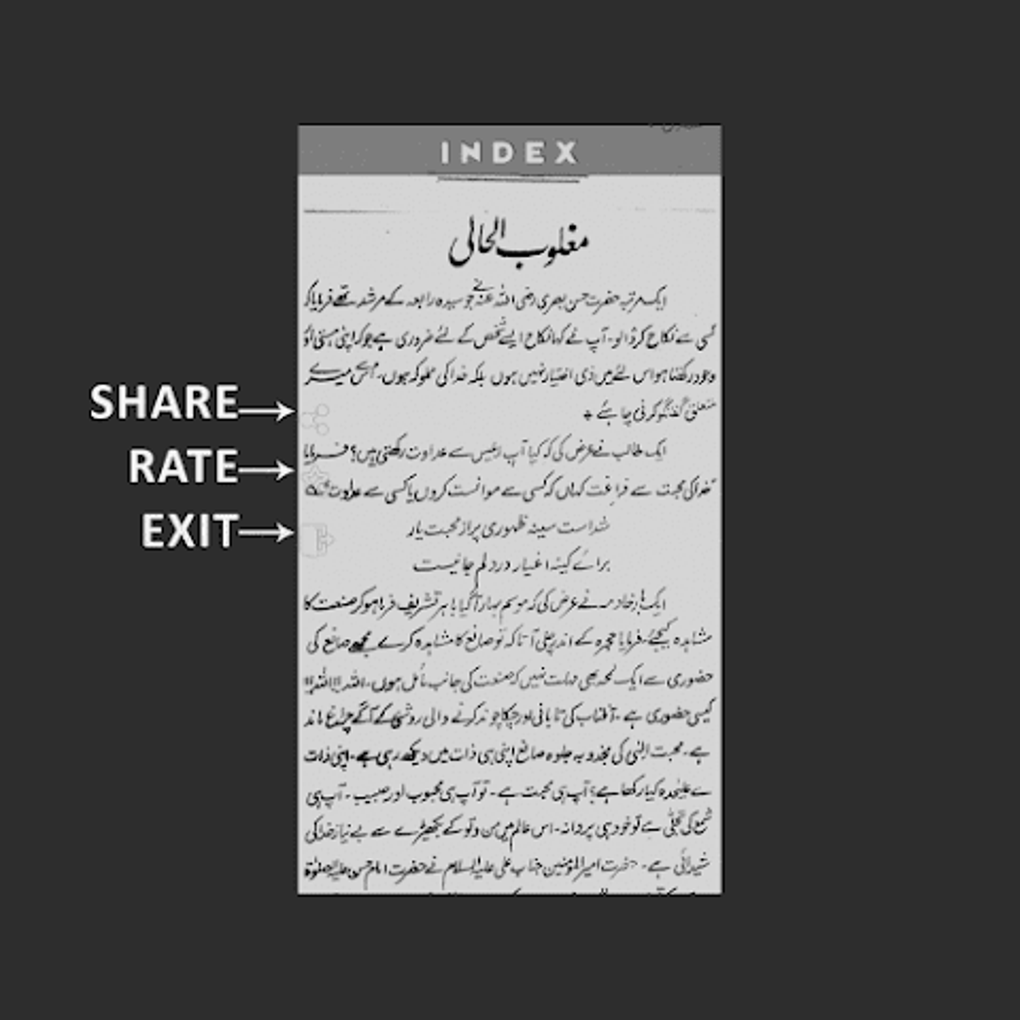 INDEX
مغلوب الحالی
ایک مرتبہ حضرت حسن بصری رضی اللہ عنہ نے جو سیدہ رابعہ کے مرشد تھے فرمایا کہ
کسی سے نکاح کر ڈالو۔ آپ نے کہا نکاح ایسے شخص کے لئے ضروری ہے جو کہ اپنی ہستی اور
وجود رکھتا ہو اس لئے میں ذی اختیار نہیں ہوں بلکہ خدا کی مملوکہ ہوں۔ میرے
متعلق گفتگو کرنی چاہئے
SHARE
ایک طالب نے عرض کی کہ کیا آپ ابلیس سے عداوت رکھتی ہیں؟ فرمایا
RATE
خدا کی محبت سے فراغت کہاں کہ کسی سے موانست کروں یا کسی سے عداوت
EXIT
شداست سینہ ظہوری پر از محبت یار
برائے کینہ اغیار در دلم جا نیست
ایک بار خادمہ نے عرض کی کہ موسم بہار آگیا باہر تشریف فرما ہو کر صنعت کا
مشاہدہ کیجئے۔ فرمایا حجرہ کے اندر چلی آ تاکہ تو صانع کا مشاہدہ کرے مجھے صانع کی
حضوری سے ایک لمحہ بھی مہلت نہیں کہ صنعت کی جانب مائل ہوں۔ اللہ اللہ
کیسی حضوری ہے۔ آفتاب کی تابانی اور چکاچوند کرنے والی روشنی کے آگے چراغ ماند
ہے۔ محبت الٰہی کی مجذوبہ جلوہ صانع اپنی ہی ذات میں دیکھ رہی ہے۔ اپنی ذات
سے علیٰحدہ کیا رکھا ہے؟ آپ ہی محبت ہے۔ تو آپ ہی محبوب اور حبیب۔ آپ ہی
شمع کی تجلی ہے تو خود ہی پروانہ۔ اس عالم میں من و تو کے بکھیڑے سے بے نیاز خدا کی
شیدائی ہے۔ حضرت امیر المؤمنین جناب علی علیہ السلام نے حضرت امام حسن علیہ الصلوٰۃ